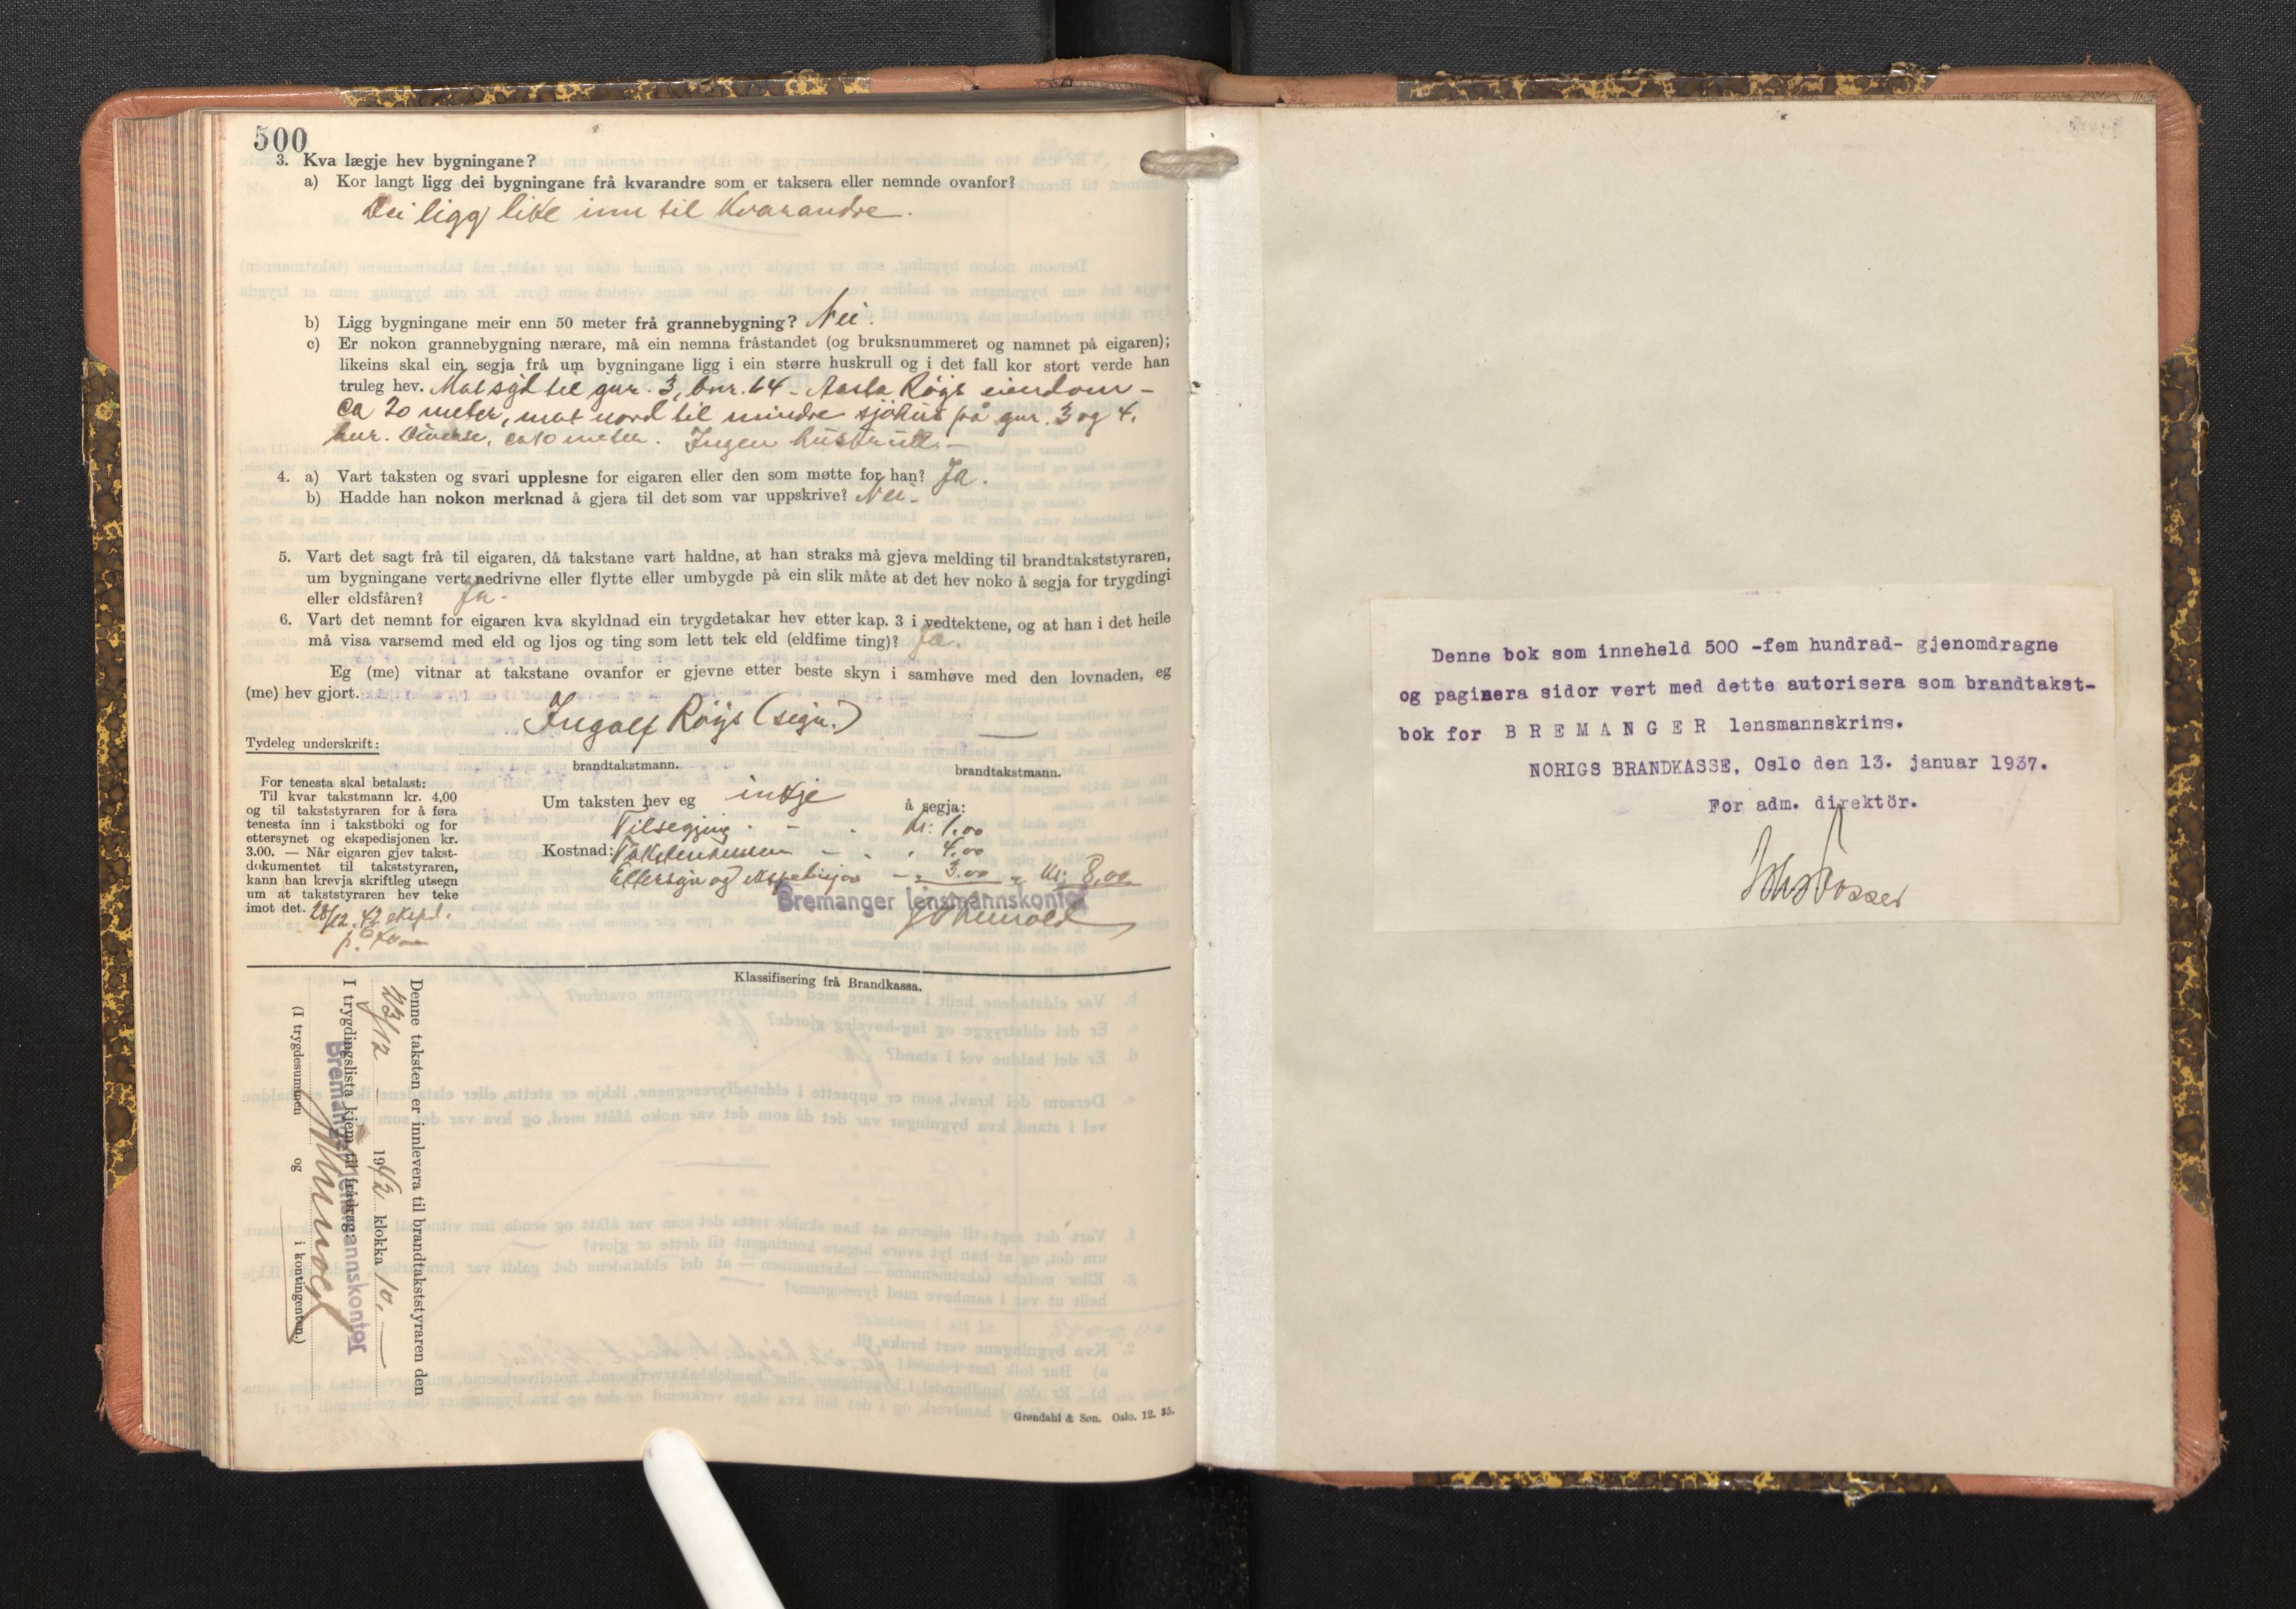 500
3. Kva lægje hev bygningane?
a) Kor langt ligg dei bygningane frå kvarandre som er taksera eller nemnde ovanfor?
Dei ligg like inn til kvarandre.
b) Ligg bygningane meir enn 50 meter frå grannebygning? Nei.
c) Er nokon grannebygning nærare, må ein nemna fråstandet (og bruksnummeret og namnet på eigaren);
likeins skal ein segja frå um bygningane ligg i ein større huskrull og i det fall kor stort verde han
truleg hev. Mot syd til gnr. 3, bnr. 64 - Aasta Røys eiendom -
ca 20 meter, mot nord til mindre sjøhus på gnr. 3 og 4.
bnr. Diverse, ca 10 meter. Ingen huskrull. -
4. a) Vart taksten og svari upplesne for eigaren eller den som møtte for han? Ja.
b) Hadde han nokon merknad å gjera til det som var uppskrive? Nei.
5. Vart det sagt frå til eigaren, då takstane vart haldne, at han straks må gjeva melding til brandtakststyraren,
um bygningane vert nedrivne eller flytte eller umbygde på ein slik måte at det hev noko å segja for trygdingi
eller eldsfåren? Ja.
6. Vart det nemnt for eigaren kva skyldnad ein trygdetakar hev etter kap. 3 i vedtektene, og at han i det heile
må visa varsemd med eld og ljos og ting som lett tek eld (eldfime ting)? Ja.
Eg (me) vitnar at takstane ovanfor er gjevne etter beste skyn i samhøve med den lovnaden, eg
(me) hev gjort.
Ingolf Røys (sign.)
Tydeleg underskrift:
brandtakstmann. brandtakstmann.
For tenesta skal betalast:
Til kvar takstmann kr. 4,00
og til takststyraren for å føra
tenesta inn i takstboki og for
ettersynet og ekspedisjonen kr.
3.00. — Når eigaren gjev takst-
dokumentet til takststyraren,
kann han krevja skriftleg utsegn
um at takststyraren hev teke
imot det. 28/12.42 eksp.
Um taksten hev eg inkje å segja:
Tilsegjing - kr. 1.00
Kostnad: Takstmennen - 4.00
Ettersyn og ekspedisjon - 3.00 = kr. 8,00
Bremanger lensmannskontor
Klassifisering frå Brandkassa.
Denne taksten er innlevera til brandtakststyraren den
23/12 — 1942 klokka 10. —
I trygdingslista kjem til frådrag
Bremanger lensmannskontor
(I trygdesummen og i kontingenten.)
Grøndahl & Søn. Oslo. 12. 35.
Denne bok som inneheld 500 -fem hundrad- gjenomdragne
og paginera sidor vert med dette autorisera som brandtakst-
bok for BREMANGER lensmannskrins.
NORIGS BRANDKASSE, Oslo den 13. januar 1937.
For adm. direktör.